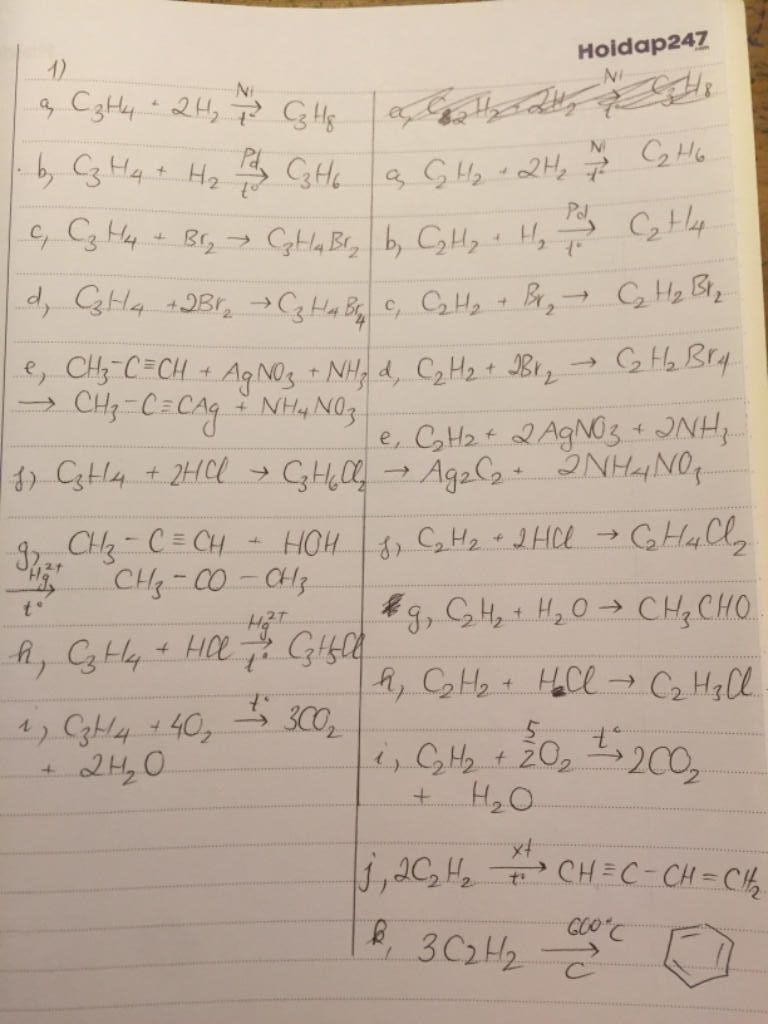 Hoidap247.com
1)
a, C₃H₄ + 2H₂ →[Ni, t°] C₃H₈
b, C₃H₄ + H₂ →[Pd, t°] C₃H₆
c, C₃H₄ + Br₂ → C₃H₄Br₂
d, C₃H₄ + 2Br₂ → C₃H₄Br₄
e, CH₃-C≡CH + AgNO₃ + NH₃
→ CH₃-C≡CAg + NH₄NO₃
f) C₃H₄ + 2HCl → C₃H₆Cl₂
g, CH₃-C≡CH + HOH
→[Hg²⁺, t°] CH₃-CO-CH₃
h, C₃H₄ + HCl →[Hg²⁺, t°] C₃H₅Cl
i, C₃H₄ + 4O₂ →[t°] 3CO₂
+ 2H₂O
a, C₂H₂ + 2H₂ →[Ni, t°] C₂H₆
b, C₂H₂ + H₂ →[Pd, t°] C₂H₄
c, C₂H₂ + Br₂ → C₂H₂Br₂
d, C₂H₂ + 2Br₂ → C₂H₂Br₄
e, C₂H₂ + 2AgNO₃ + 2NH₃
→ Ag₂C₂ + 2NH₄NO₃
f, C₂H₂ + 2HCl → C₂H₄Cl₂
g, C₂H₂ + H₂O → CH₃CHO
h, C₂H₂ + HCl → C₂H₃Cl
i, C₂H₂ + 5/2O₂ →[t°] 2CO₂
+ H₂O
j, 2C₂H₂ →[xt, t°] CH≡C-CH=CH₂
k, 3C₂H₂ →[600°C, C]